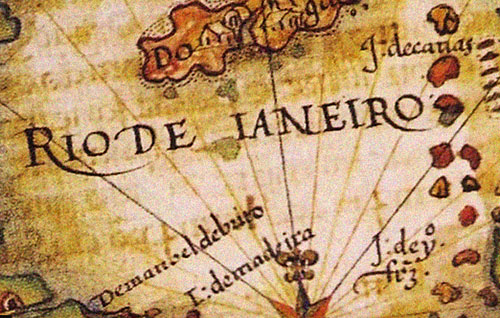 Do
J: decanas
RIO DE IANEIRO
Demanoel debrito
I: demadeira
J: dey.º
frz.